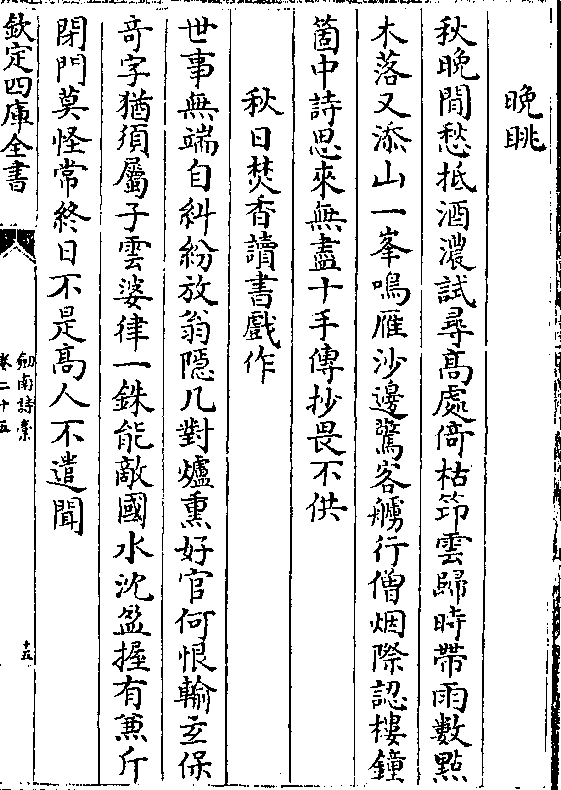 晚眺
秋晚閒愁抵酒濃試尋髙處倚枯筇雲歸時帶雨數點
木落又添山一峯鳴雁沙邊驚客艣行僧烟際認樓鐘
箇中詩思來無盡十手傳抄畏不供
秋日焚香讀書戲作
世事無端自糾紛放翁隠几對爐熏好官何恨輸𤣥保
竒字猶須屬子雲婆律一銖能敵國水沈盈握有兼斤
閉門莫怪常終日不是髙人不遣聞
欽定四庫全書
劍南詩稾
卷二十五
十五